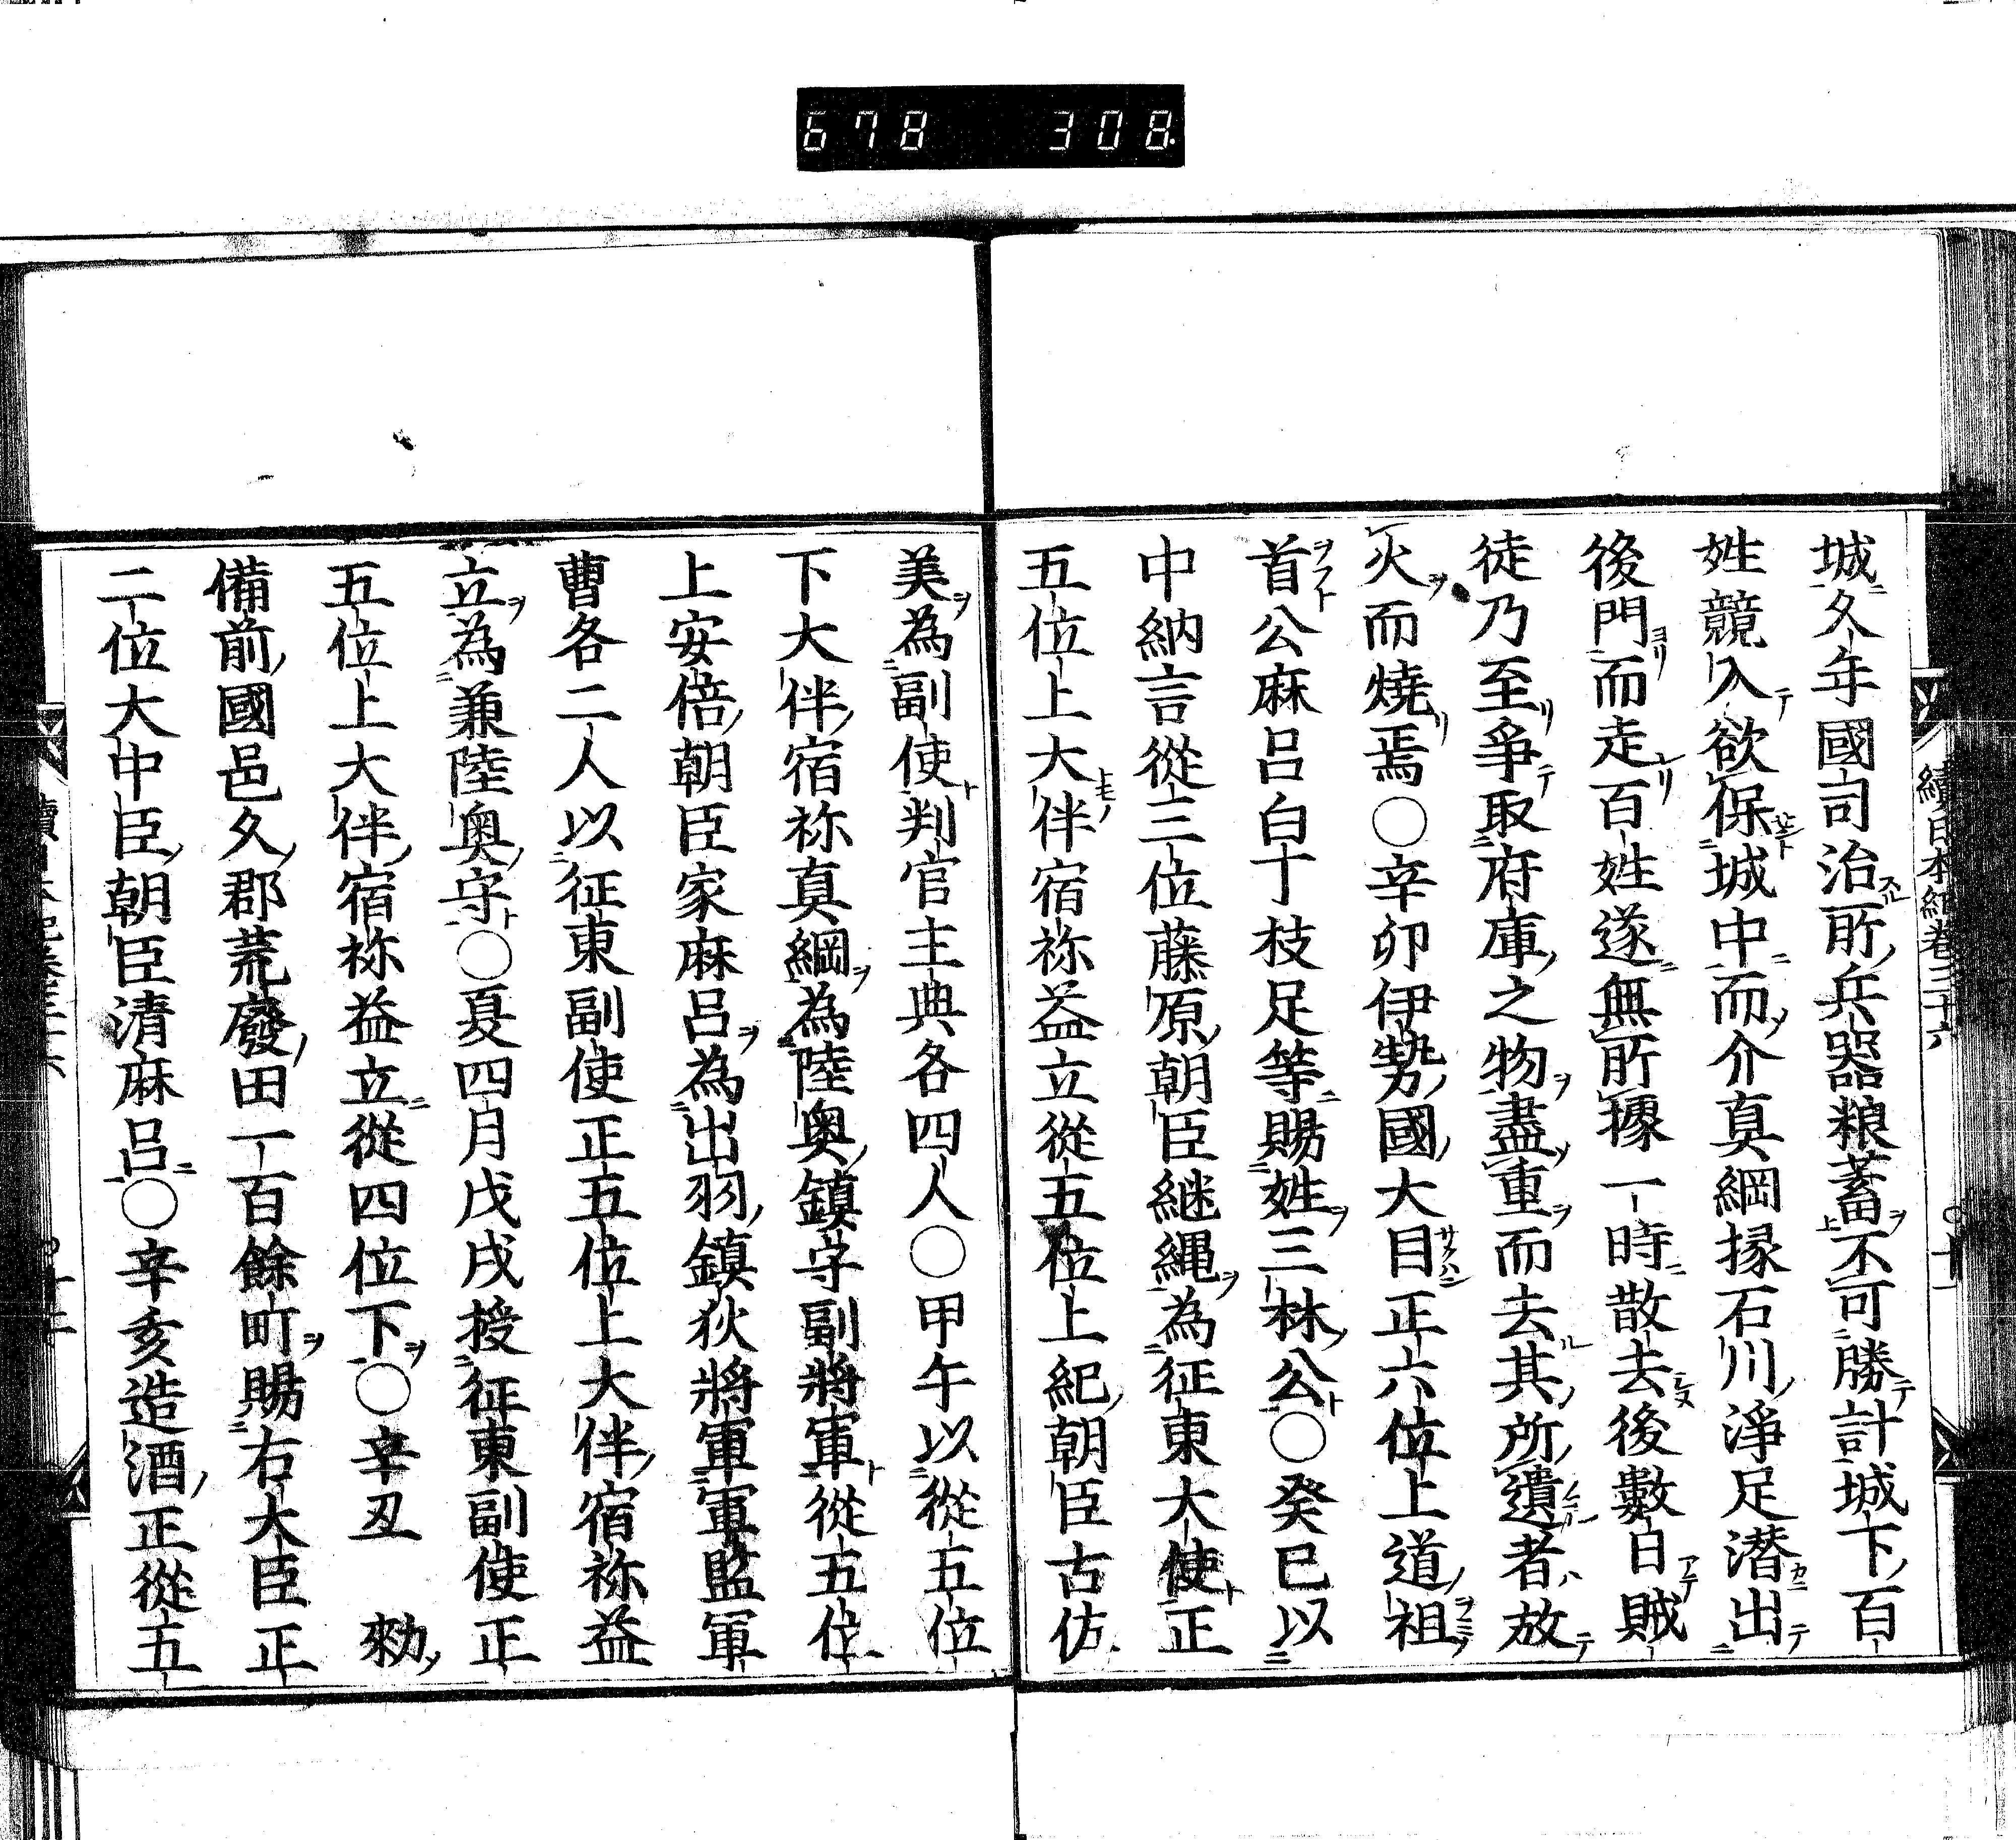 678 308
續日本紀卷三十六 ○十一
城久年國司治所兵器粮蓄不可勝計城下百
姓競入欲保城中而介真綱掾石川淨足潜出
後門而走百姓遂無所據一時散去後數日賊
徒乃至爭取府庫之物盡重而去其所遺者放
火而燒焉○辛卯伊勢國大目正六位上道祖
首公麻呂白丁枝足等賜姓三林公○癸巳以
中納言從三位藤原朝臣継縄為征東大使正
五位上大伴宿祢益立從五位上紀朝臣古佐
美為副使判官主典各四人○甲午以從五位
下大伴宿祢真綱為陸奥鎮守副將軍從五位
上安倍朝臣家麻呂為出羽鎮狄將軍軍監軍
曹各二人以征東副使正五位上大伴宿祢益
立為兼陸奥守○夏四月戊戌授征東副使正
五位上大伴宿祢益立從四位下○辛丑 勑
備前國邑久郡荒廢田一百餘町賜右大臣正
二位大中臣朝臣清麻呂○辛亥造酒正從五